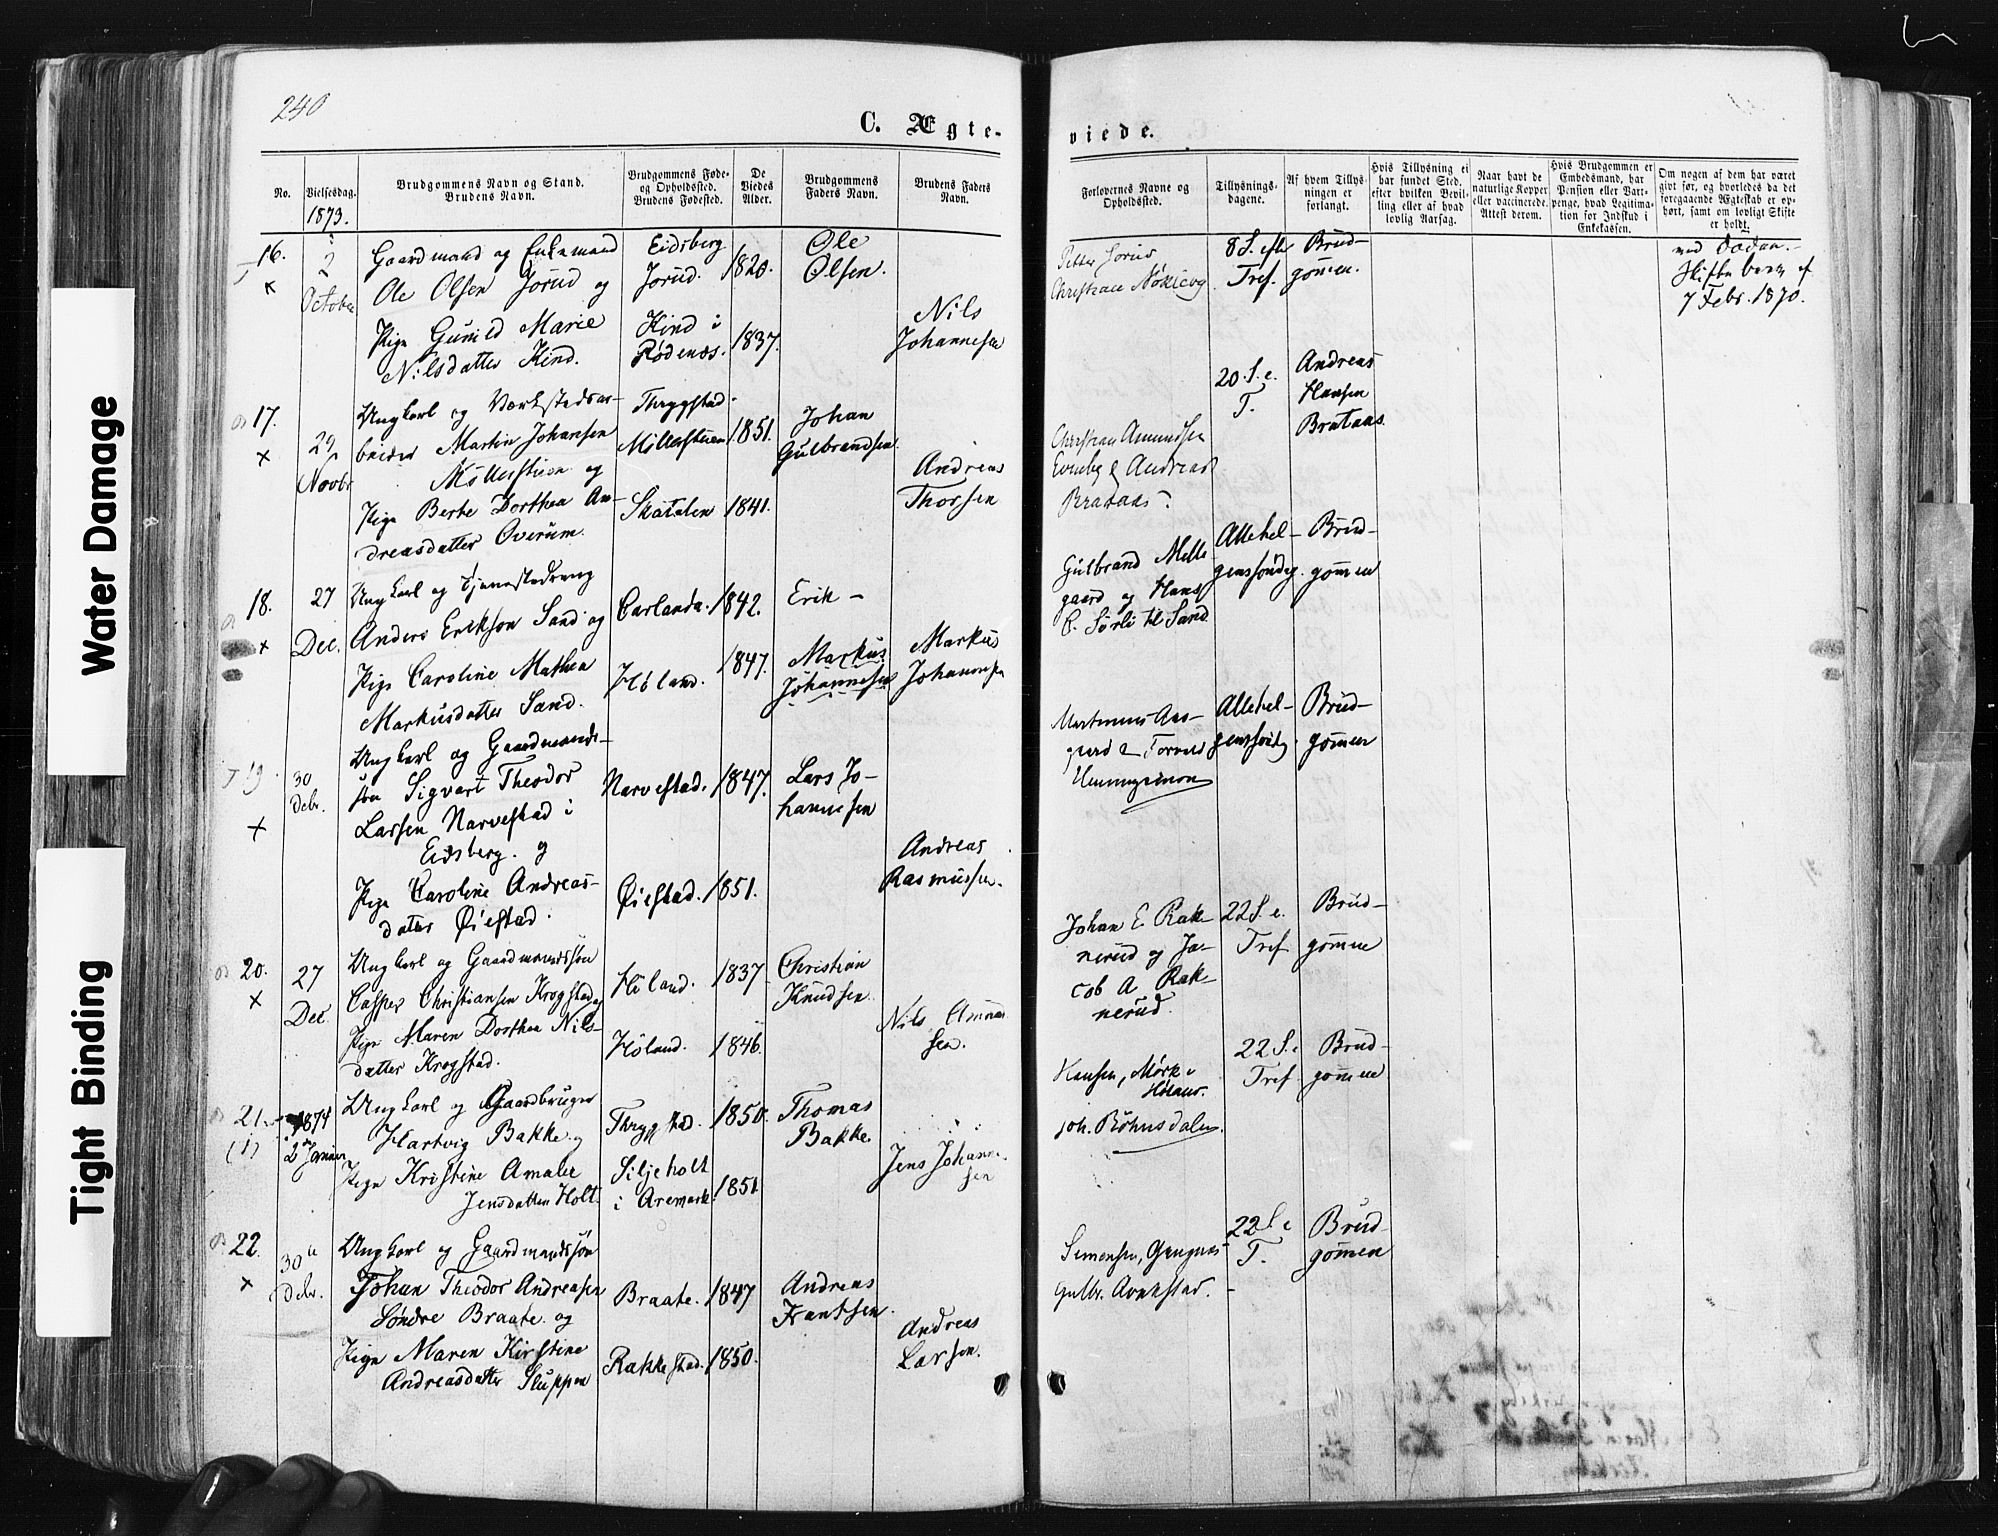 240
C. Ægte-
viede.
No.
Vielsesdag.
1873.
Brudgommens Navn og Stand.
Brudens Navn.
Brudgommens Føde-
og Opholdssted.
Brudens Fødested.
De
Viedes
Alder.
Brudgommens
Faders Navn.
Brudens Faders
Navn.
Forlovernes Navne og
Opholdssted.
Tillysnings-
dagene.
Af hvem Tillys-
ningen er
forlangt.
Hvis Tillysning ei
har fundet Sted,
efter hvilken Bevil-
ling eller af hvad
lovlig Aarsag.
Naar havt de
naturlige Kopper
eller vaccinerede.
Attest derom.
Hvis Brudgommen er
Embedsmand, har
Pension eller Vart-
penge, hvad Legitima-
tion for Indskud i
Enkekassen.
Om nogen af dem har været
gift før, og hvorledes da det
foregaaende Ægteskab er op-
hørt, samt om lovligt Skifte
er holdt.
16.
x
2
October
Gaardmand og Enkemand
Ole Olsen Jorud og
Pige Gunild Marie
Nilsdatter Kind.
Eidsberg
Jorud.
Kind i
Rødenæs.
1820.
1837.
Ole
Olsen.
Nils
Johannesen
Petter Jorud
Christian
8 S. eft
Tref.
Brud-
gommen.
ved Døden.
Skiftebev. af
7 Febr. 1870.
17.
x
29
Novbr
Ungkarl og Værkstedsar-
beider Martin Johansen
Møllerstuen og
Pige Berte Dorthea An-
dreasdatter Overum.
Thrygstad
Møllerstuen
Skatalen
1851.
1841.
Johan
Gulbrandsen
Andreas
Thorsen
Christian Amundsen
Evenby & Andreas
Brataas
20. S. e.
T.
Andreas
Hansen
Brataas.
18.
x
27
Dec.
Ungkarl og Tjenestedreng
Anders Erikson Sand og
Pige Caroline Mathea
Markusdatter Sand.
Carlanda.
Høland.
1842.
1847.
Erik -
Markus
Johannesen
Markus
Johannesen
Gulbrand Melle-
gaard og Hans
C. Sørli til Sand
Allehel-
genssøndag.
Brud-
gommen
19.
x
30
Debr.
Ungkarl og Gaardmands-
søn Sigvart Theodor
Larsen Narvestad i
Eidsberg. og
Pige Caroline Andreas-
datter Øiestad.
Narvestad.
Øiestad.
1847.
1851.
Lars Jo-
hannesen
Andreas
Rasmussen.
Martinius Aas-
gaard & Torvald
Hemmingsmoen
Allehel-
genssøndg.
Brud-
gommen
20.
x
27
Dec
Ungkarl og Gaardmandssøn
Casper Christiansen Krogstad og
Pige Maren Dorthea Nils-
datter Krogstad.
Høland.
Høland.
1837
1846.
Christian
Knudsen.
Nils
sen.
Johan E. Rak-
nerud og Ja-
cob A Rak-
nerud.
22 S. e.
Tref
Brud-
gommen
21.
(1)
1874
2 Januar
Ungkarl og Gaardbruger
Hartvig Bakke og
Pige Kristine Amalie
Jensdatter Holt.
Thrygstad.
Siljeholt
i Aremark
1850.
1851
Thomas
Bakke.
Jens Johanne-
sen
Hansen, Mørk i
Høland.
Joh. Böhnsdalen.
22 S. e
Tref
Brud-
gommen
22.
x
30
Debr.
Ungkarl og Gaardmandssøn
Johan Theodor Andreasen
Søndre Braate. og
Pige Maren Kirstine
Andreasdatter Sluppen
Braate.
Rakkestad.
1847
1850.
Andreas
Frantsen.
Andreas
Larsen.
Simensen,
Gulbr.
22 S. e
T.
Brud-
gommen
Water Damage
Tight Binding